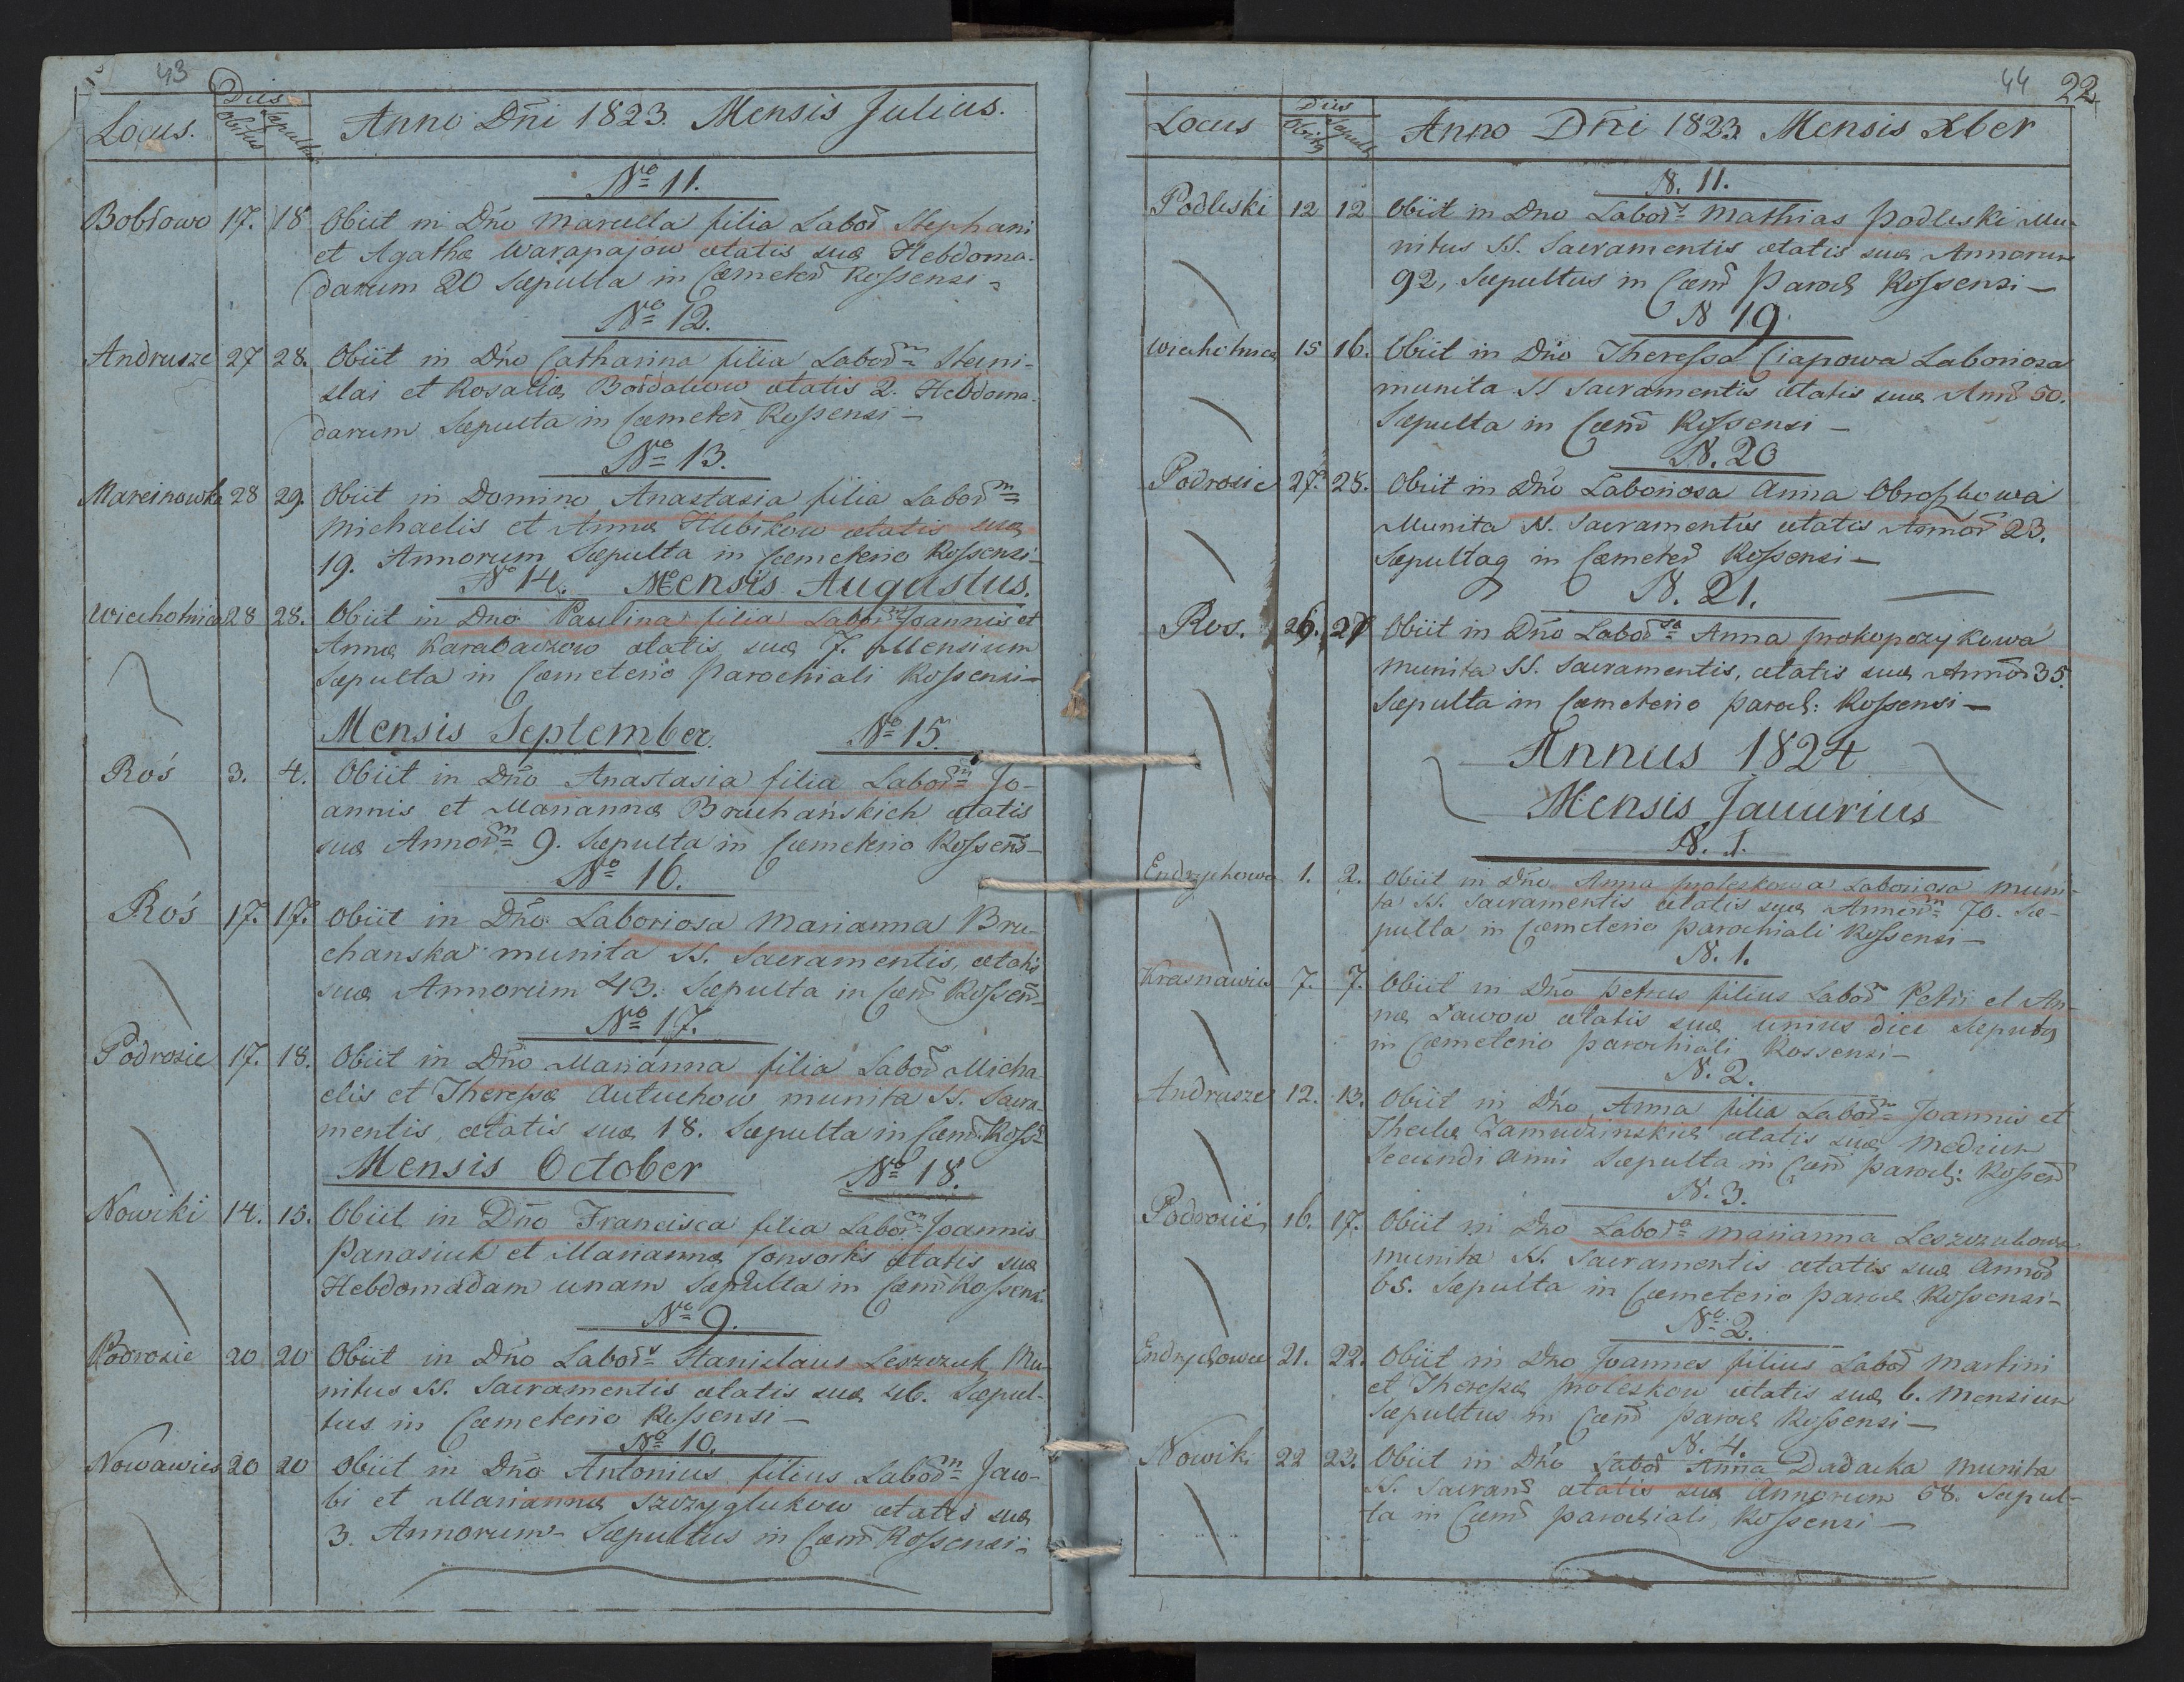 43
Locus.
Dies
Obitus
Sepultu
Anno Dñi 1823. Mensis Julius.
No 11.
Bobrowo 17. 18 Obiit in Dño Marcella filia Labor̄ Stephani
et Agathæ Warapajow ætatis suæ Hebdoma-
darum 20 Sæpulta in Cæmeter̄ Rossensi -
No 12.
Andrusze 27 28. Obiit in Dño Catharina filia Laborm Steni-
slai et Rosaliæ ætatis 2. Hebdoma-
darum Sæpulta in Cæmeter̄ Rossensi -
No 13.
Marcinowka 28 29. Obiit in Domino Anastasia filia Laborm
Michaelis et Annæ Hubikow ætatis suæ
19. Annorum Sæpulta in Cæmeterio Rossensi -
No 14. Mensis Augustus.
Wiecholnica 28 28. Obiit in Dno Paulina filia Laborm Joannis et
Annæ ætatis suæ 7. Mensium
Sæpulta in Cæmeterio Parochiali Rossensi -
Mensis September. No 15.
Roś 3. 4. Obiit in Dño Anastasia filia Laborm Jo-
annis et Mariannæ Bruchańskich ætatis
suæ Annorm 9. Sæpulta in Cæmeterio Rossens -
No 16.
Roś 17. 17. Obiit in Dño Laboriosa Marianna Bru-
chanska munita SS. Sacramentis, ætatis
suæ Annorum 43. Sæpulta in Cæm̄ Rossen̄
No 17.
Podrosie 17. 18. Obiit in Dño Marianna filia Labor̄ Micha-
elis et Theressæ Autuchow munita SS. Sacra-
mentis, ætatis suæ 18. Sæpulta in Cæm̄ Ross
Mensis October No 18.
Nowiki 14. 15. Obiit in Dño Francisca filia Laborm Joannis
Panasiuk et Mariannæ Consortis ætatis suæ
Hebdomadam unam Sæpulta in Cæm̄ Rossensi
No 9.
Podrosie 20 20 Obiit in Dño Labors Stanislaus Leszczuk Mu-
nitus SS. Sacramentis ætatis suæ Sæpul-
tus in Cæmeterio Rossensi -
No 10.
Nowawies 20 20 Obiit in Dño Antonius filius Laborm Jaw-
bi et Mariannæ Szczyglukow ætatis suæ
3. Annorum Sæpultus in Cæm̄ Rossensi -
44 22
Locus
Dies
Obitus
Sepult
Anno Dñi 1823 Mensis Xber
N. 11.
Podleski 12 12 Obiit in Dno Labors Mathias Podleski Mu-
nitus SS. Sacramentis ætatis suæ Annorum
92, Sæpultus in Cæm̄ Paroch Rossensi -
N 19.
Wiecholnica 15 16. Obiit in Dño Theressa Ciapowa Laboriosa
munita SS Sacramentis ætatis suæ Ann̄ 50.
Sæpulta in Cæm̄ Rossensi -
N. 20
Podrosie 27. 28. Obiit in Dño Laboriosa Anna
Munita SS. Sacramentis ætatis Annor̄ 23.
in Cæmeter̄ Rossensi -
N. 21.
Ros. 26. 27 Obiit in Dño Laborsa Anna Prokopczykowa
munita SS. Sacramentis, ætatis suæ Annor̄ 35.
Sæpulta in Cæmeterio paroch: Rossensi -
Annus 1824
Mensis Jauurius
N. 1.
Endrychowa 1. 2. Obiit in Dño Anna Proleskowa Laboriosa muni-
ta SS. Sacramentis ætatis suæ Annorm 70. Sæ-
pulta in Cæmeterio Parochiali Rossensi -
N. 1.
Krasnawies 7. 7. Obiit in Dño Petrus filius Labor̄ Petri et An-
næ Zawow ætatis suæ unius diei
in Cæmeterio Parochiali Rossensi -
N. 2.
Andrusze 12. 13. Obiit in Dño Anna filia Laborm Joannis et
Theclæ ætatis suæ Medium
Secundi anni Sæpulta in Cæm̄ Paroch: Rossen̄
N. 3.
Podrosie 16. 17. Obiit in Dno Labora Marianna Leszczukowa
munita SS. Sacramentis ætatis suæ Annor̄
65. Sæpulta in Cæmeterio Paroch Rossensi -
No 2.
Endrychowce 21. 22. Obiit in Dno Joannes filius Labor̄ Martini
et Theressæ Proleskow ætatis suæ 6. Mensium
Sæpultus in Cæm̄ Paroch Rossensi -
N. 4.
Nowik 22 23. Obiit in Dño Labor̄ Anna Dadacka Munita
SS. Sacram̄ ætatis suæ Annorum 68. Sæpul-
ta in Cæm̄ Parochiali Rossensi -